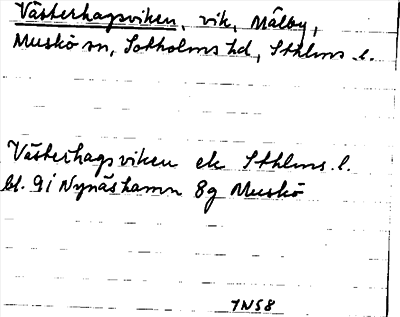 Västerhagsviken, vik, Målby,
Muskö sn, Sotholms hd, Sthlms l.
Västerhagsviken ek Sthlms l.
bl. 9i Nynäshamn 8g Muskö
1N58